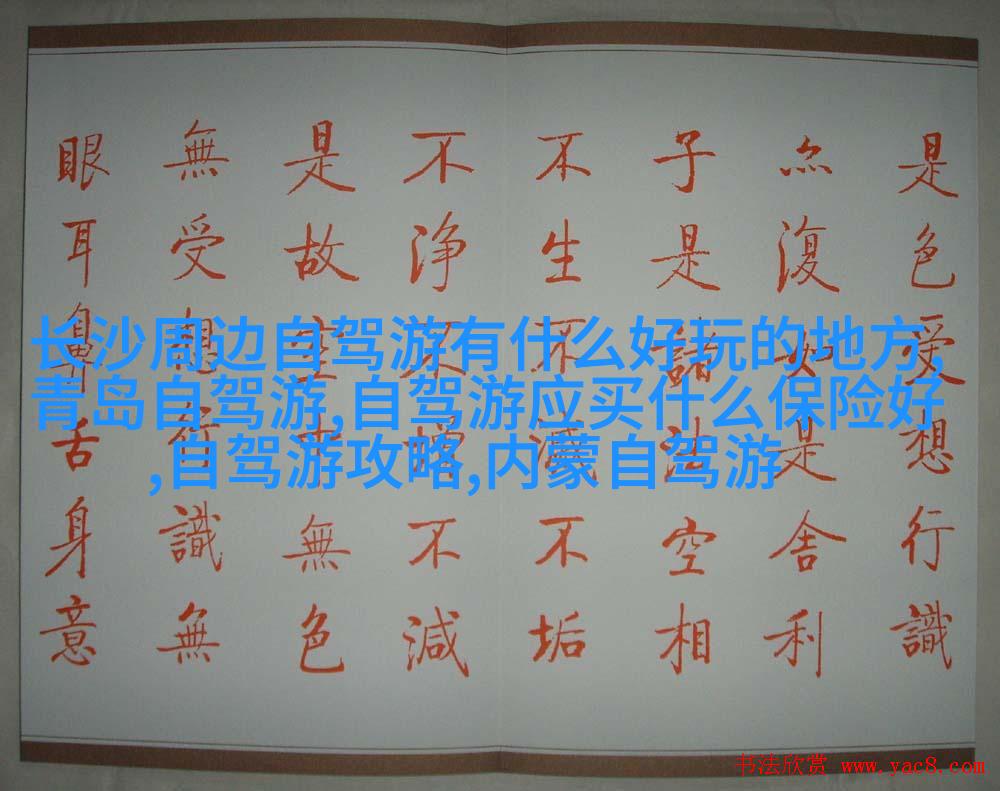 是色受想行識
亦復如是舍利
子是諸法空相
不生不滅不垢
不浄不增不減
是故空中無色
無受想行識無
眼耳鼻舌身意
长沙周边自驾游有什么好玩的地方,
青岛自驾游,自驾游应买什么保险好
,自驾游攻略,内蒙自驾游
书法欣赏 www.yac8.com